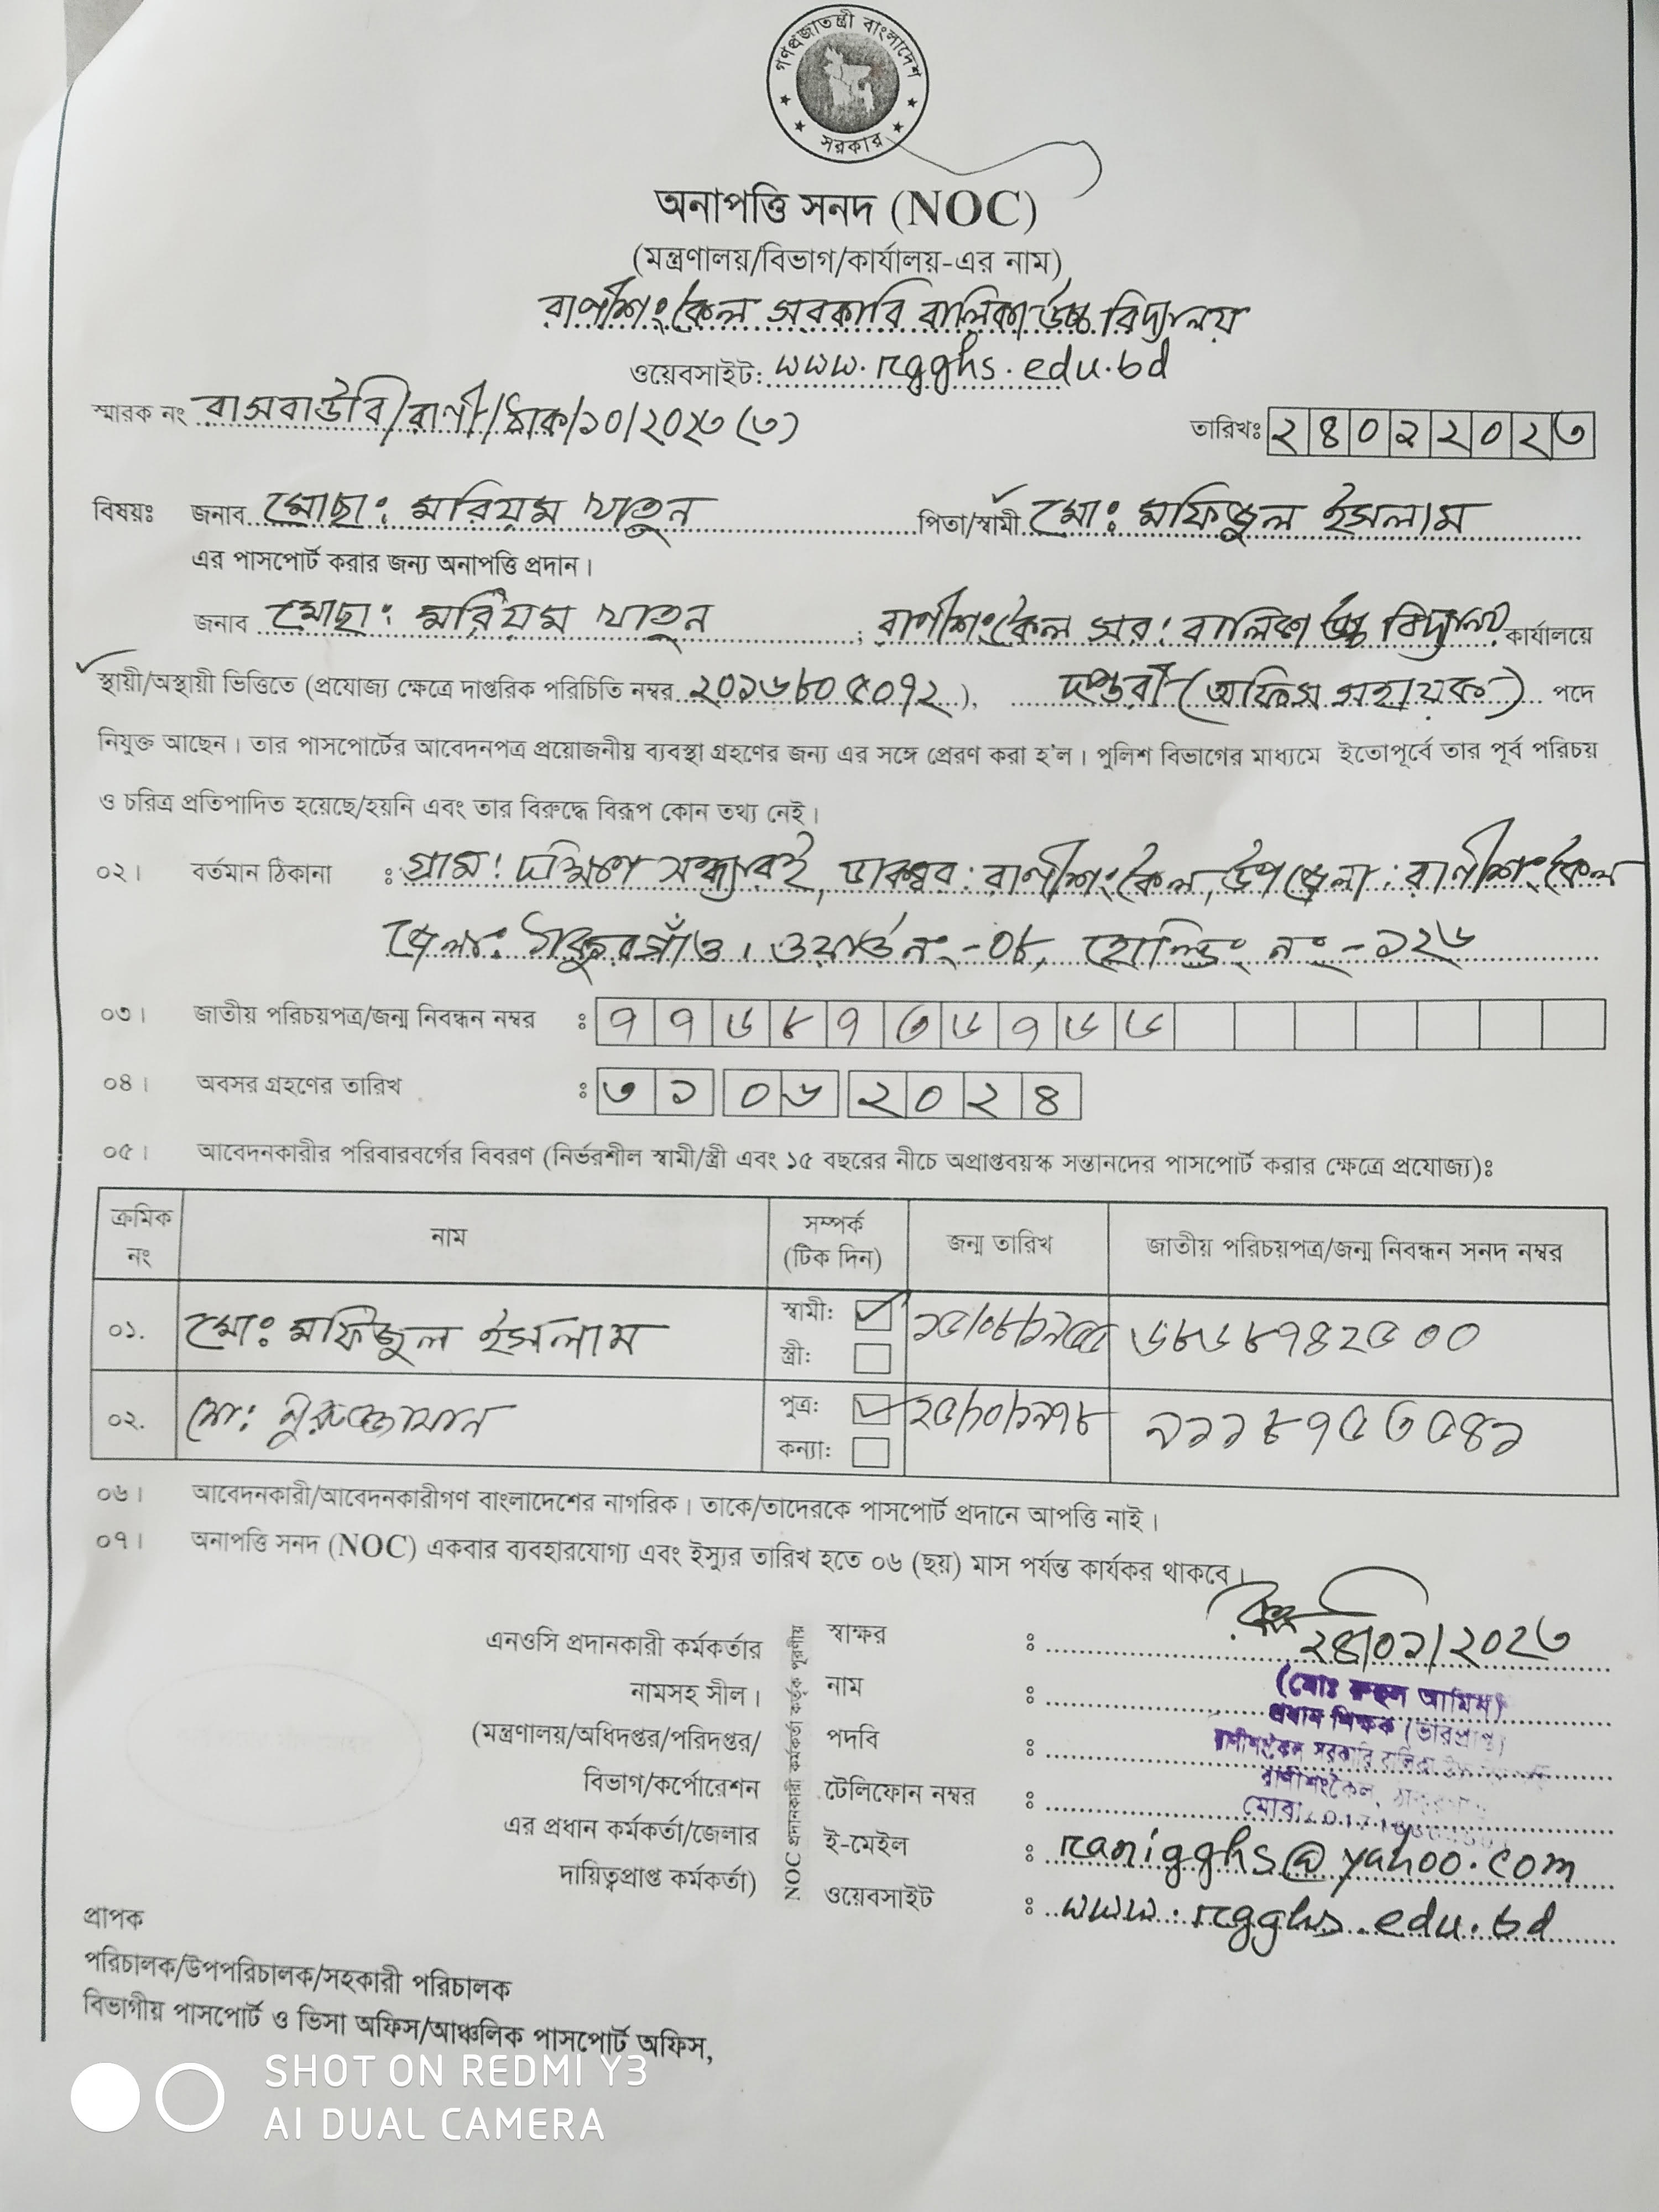 গণপ্রজাতন্ত্রী বাংলাদেশ
সরকার
অনাপত্তি সনদ (NOC)
(মন্ত্রণালয়/বিভাগ/কার্যালয়-এর নাম)
রাণীশংকৈল সরকারি বালিকা উচ্চ বিদ্যালয়
ওয়েবসাইট: www.rgghs.edu.bd
স্মারক নং রাসবাউবি/রাণী/ঠাক/১০/২০২৩ (৩) তারিখঃ ২৪০২২০২৩
বিষয়ঃ জনাব মোছা: মরিয়ম খাতুন পিতা/স্বামী মো: মফিজুল ইসলাম
এর পাসপোর্ট করার জন্য অনাপত্তি প্রদান।
জনাব মোছা: মরিয়ম খাতুন ; রাণীশংকৈল সর: বালিকা উচ্চ বিদ্যালয় কার্যালয়ে
স্থায়ী/অস্থায়ী ভিত্তিতে (প্রযোজ্য ক্ষেত্রে দাপ্তরিক পরিচিতি নম্বর ২০১৬৮০৫০৭২), দপ্তরী (অফিস সহায়ক) পদে
নিযুক্ত আছেন। তার পাসপোর্টের আবেদনপত্র প্রয়োজনীয় ব্যবস্থা গ্রহণের জন্য এর সঙ্গে প্রেরণ করা হ'ল। পুলিশ বিভাগের মাধ্যমে ইতোপূর্বে তার পূর্ব পরিচয়
ও চরিত্র প্রতিপাদিত হয়েছে/হয়নি এবং তার বিরুদ্ধে বিরূপ কোন তথ্য নেই।
০২। বর্তমান ঠিকানা : গ্রাম: দক্ষিণ সন্ধ্যারই, ডাকঘর: রাণীশংকৈল, উপজেলা: রাণীশংকৈল
জেলা: ঠাকুরগাঁও। ওয়ার্ড নং-০৮, হোল্ডিং নং-১২৬
০৩। জাতীয় পরিচয়পত্র/জন্ম নিবন্ধন নম্বর : ৭৭৬৮৭৩৬৭৬৬
০৪। অবসর গ্রহণের তারিখ : ৩১ ০৬ ২০২৪
০৫। আবেদনকারীর পরিবারবর্গের বিবরণ (নির্ভরশীল স্বামী/স্ত্রী এবং ১৫ বছরের নীচে অপ্রাপ্তবয়স্ক সন্তানদের পাসপোর্ট করার ক্ষেত্রে প্রযোজ্য)ঃ
ক্রমিক নং নাম সম্পর্ক (টিক দিন) জন্ম তারিখ জাতীয় পরিচয়পত্র/জন্ম নিবন্ধন সনদ নম্বর
০১. মো: মফিজুল ইসলাম স্বামী: ১৫/০৮/১৯৫৫ ৬৮৬৮৭৪২৫০০
স্ত্রী:
০২. মো: নুরুজ্জামান পুত্র: ২৫/১০/১৯৭৮ ৯১১৮৭৫৩৫৪১
কন্যা:
০৬। আবেদনকারী/আবেদনকারীগণ বাংলাদেশের নাগরিক। তাকে/তাদেরকে পাসপোর্ট প্রদানে আপত্তি নাই।
০৭। অনাপত্তি সনদ (NOC) একবার ব্যবহারযোগ্য এবং ইস্যুর তারিখ হতে ০৬ (ছয়) মাস পর্যন্ত কার্যকর থাকবে।
এনওসি প্রদানকারী কর্মকর্তার
নামসহ সীল।
(মন্ত্রণালয়/অধিদপ্তর/পরিদপ্তর/
বিভাগ/কর্পোরেশন
এর প্রধান কর্মকর্তা/জেলার
দায়িত্বপ্রাপ্ত কর্মকর্তা)
NOC প্রদানকারী কর্মকর্তা কর্তৃক পূরণীয়
স্বাক্ষর : ২৪/০২/২০২৩
নাম : (মোঃ রুহুল আমিন)
প্রধান শিক্ষক (ভারপ্রাপ্ত)
পদবি : রাণীশংকৈল সরকারি বালিকা
রাণীশংকৈল,
টেলিফোন নম্বর :
ই-মেইল : ranigghs@yahoo.com
ওয়েবসাইট : www.rgghs.edu.bd
প্রাপক
পরিচালক/উপপরিচালক/সহকারী পরিচালক
বিভাগীয় পাসপোর্ট ও ভিসা অফিস/আঞ্চলিক পাসপোর্ট অফিস,
SHOT ON REDMI Y3
AI DUAL CAMERA